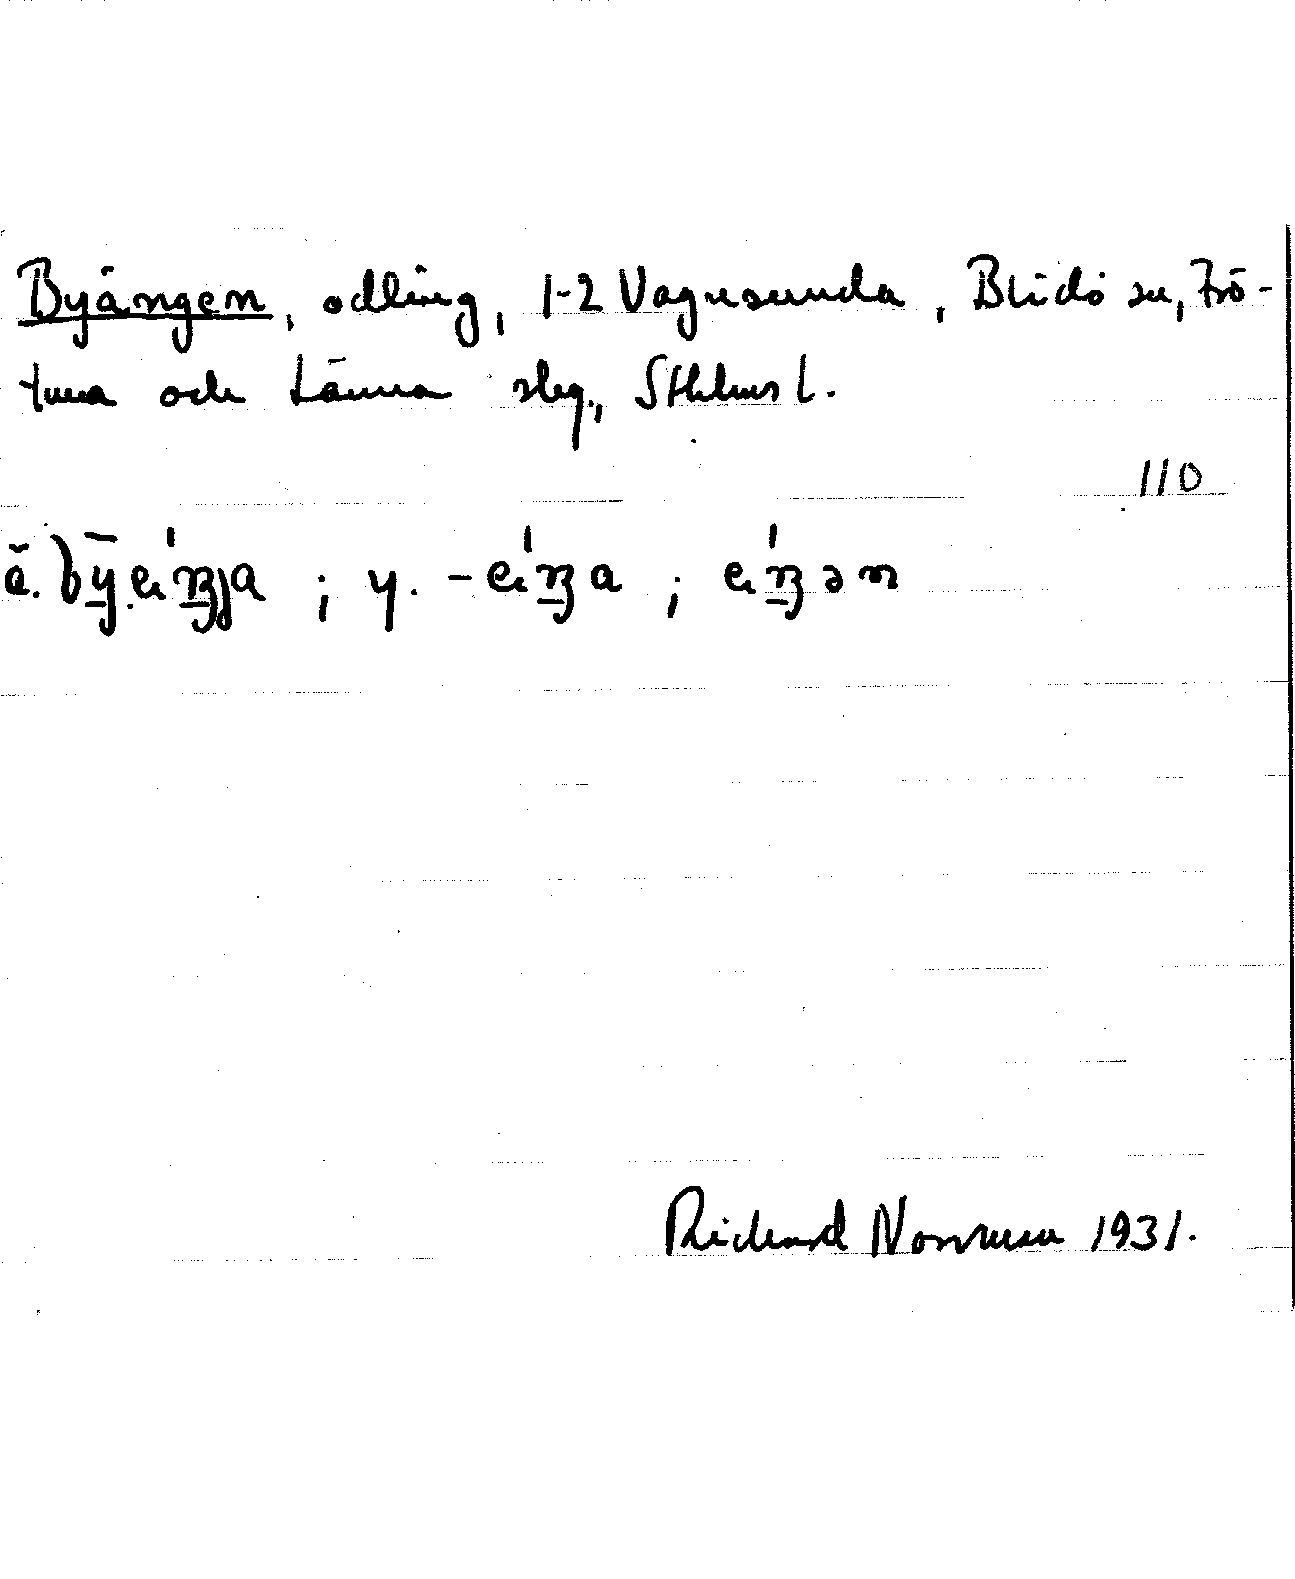 Byängen, odling, 1-2 Vagnsunda, Blidö sn, Frö-
tuna och Länna slg., Sthlms l.
110
ä. bȳ.eŋja ; y. -eŋa ; eŋən
Richard Norrman 1931.